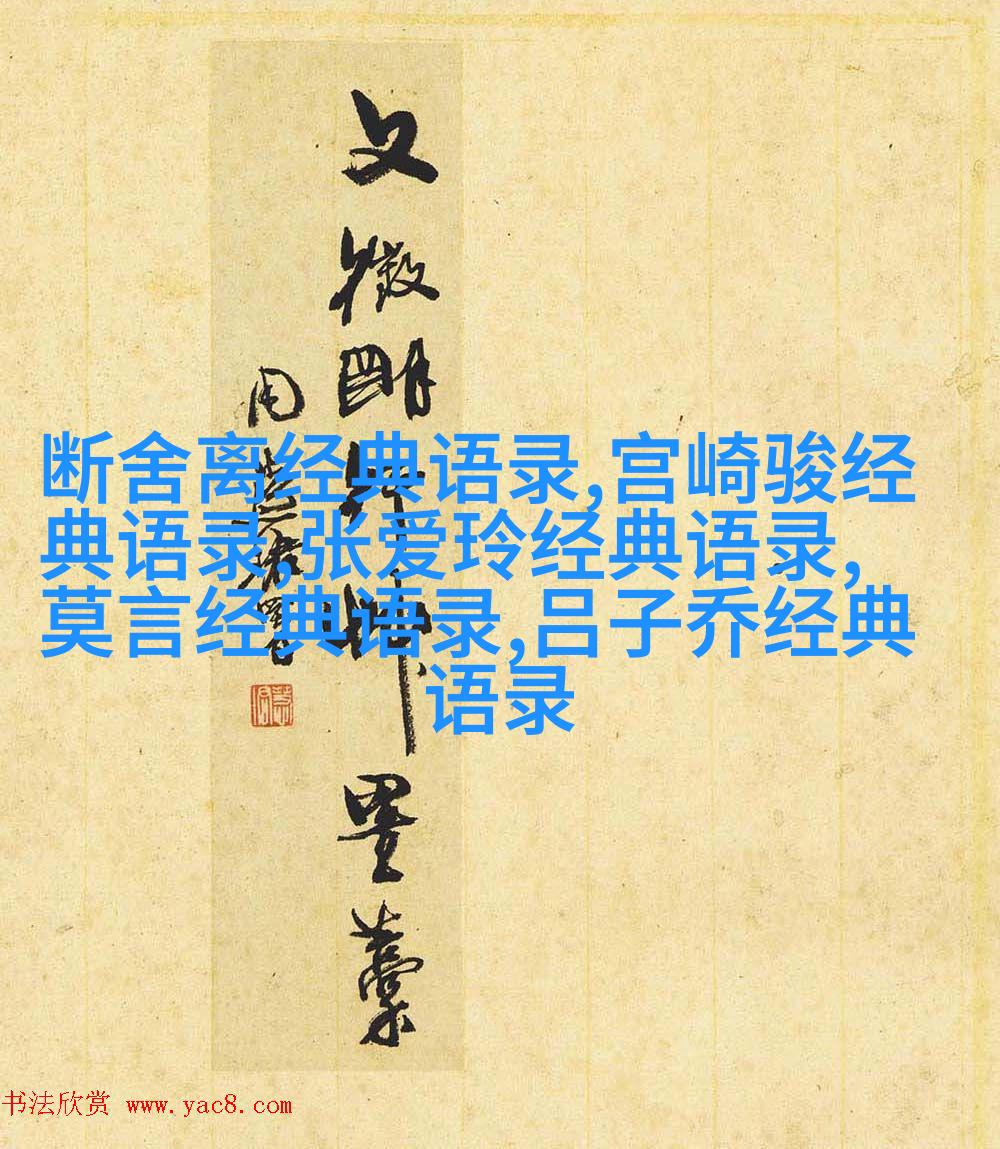 文徵明墨藁
断舍离经典语录,宫崎骏经
典语录,张爱玲经典语录,
莫言经典语录,吕子乔经典
语录
书法欣赏 www.yac8.com